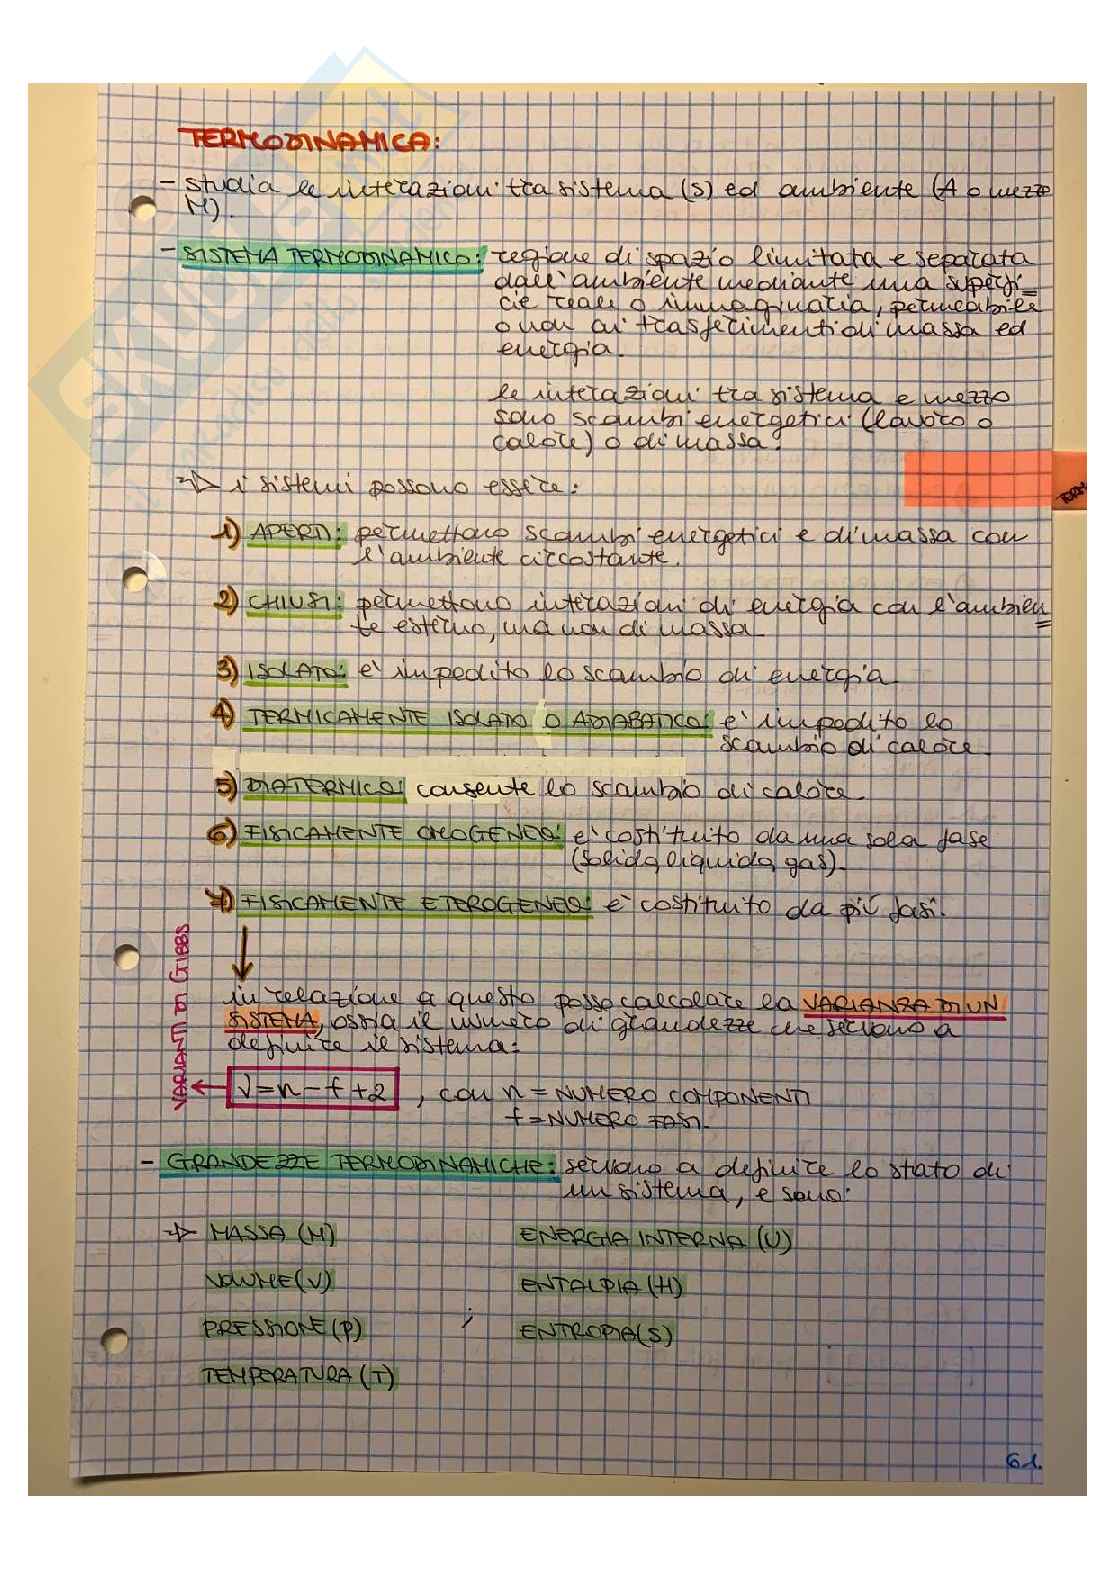 TERMODINAMICA:
- studia le interazioni tra sistema (S) ed ambiente (A o mezzo
M).
- SISTEMA TERMODINAMICO: regione di spazio limitata e separata
dall'ambiente mediante una superfi=
cie reale o immaginaria, permeabile
o non ai trasferimenti di massa ed
energia.
le interazioni tra sistema e mezzo
sono scambi energetici (lavoro o
calore) o di massa.
TERM
=> i sistemi possono essere:
1) APERTI: permettono scambi energetici e di massa con
l'ambiente circostante.
2) CHIUSI: permettono interazioni di energia con l'ambien=
te esterno, ma non di massa.
3) ISOLATO: e' impedito lo scambio di energia.
4) TERMICAMENTE ISOLATO O ADIABATICO: e' impedito lo
scambio di calore.
5) DIATERMICO: consente lo scambio di calore.
6) FISICAMENTE OMOGENEO: e' costituito da una sola fase
(solida, liquida, gas).
7) FISICAMENTE ETEROGENEO: e' costituito da più fasi.
in relazione a questo posso calcolare la VARIANZA DI UN
SISTEMA, ossia il numero di grandezze che servono a
definire il sistema:
VARIANTI DI GIBBS ← V=n-f+2, con n = NUMERO COMPONENTI
f = NUMERO FASI.
- GRANDEZZE TERMODINAMICHE: servono a definire lo stato di
un sistema, e sono:
=> MASSA (M) ENERGIA INTERNA (U)
VOLUME (V) ENTALPIA (H)
PRESSIONE (P) ; ENTROPIA (S)
TEMPERATURA (T)
61.